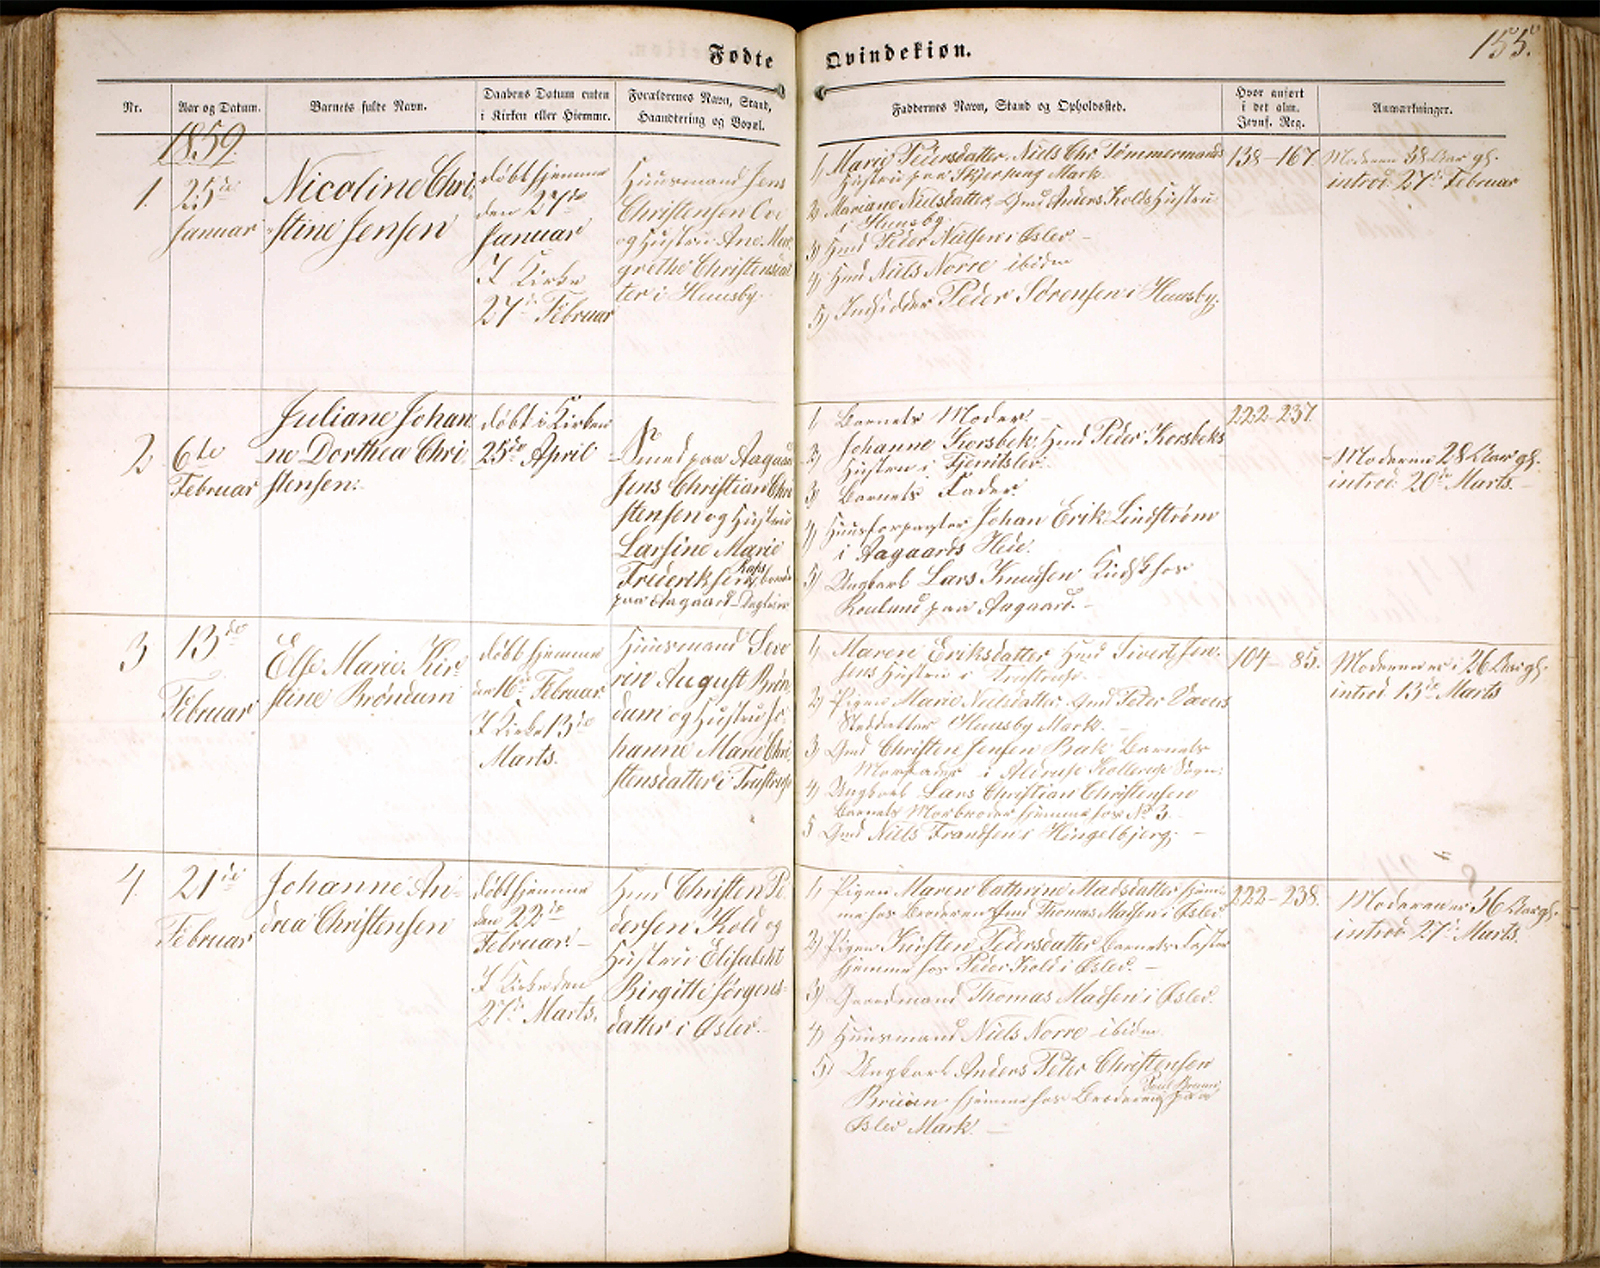 Fødte Qvindekiøn.
155.
Nr.
Aar og Datum.
Barnets fulde Navn.
Daabens Datum enten
i Kirken eller Hiemme.
Forældrenes Navn, Stand,
Haandtering og Bopæl.
Faddernes Navn, Stand og Opholdssted.
Hvor anført
i det alm.
Jevnf. Reg.
Anmærkninger.
1859.
1.
25de
Januar
Nicoline Chri-
stine Jensen
døbt hjemme
den 27de
Januar
I Kirke
27de Februar
Huusmand Jens
Christensen
og Hustru Ane Mar-
grethe Christensdat-
ter i Huusby.
1, Marie Pedersdatter, Niels Chr. Tømmermands
Hustru paa Skjerping Mark.
2, Mariane Nielsdatter, Gmd Anders Kolds Hustru
i Huusby.
3, Hmd Peder Nielsen i Øslev.
4, Hmd Niels Norre ibidem
5, Indsidder Peder Sørensen i Huusby.
138-167.
Moderen 38 Aar gl.
introd. 27de Februar
2
6te
Februar
Juliane Johan
ne Dorthea Chri
stensen.
døbt i Kirken
25de April
Smed paa Aagaard
Jens Christian Chri
stensen og Hustru
Larsine Marie
Frederiksen
paa Aagaard
1, Barnets Moder.
2, Johanne Korsbek, Hmd Peder Korsbeks
Hustru i Tjeritslev.
3, Barnets Fader.
4, Huusforpagter Johan Erik Lindstrøm
i Aagaards Hede.
5, Ungkarl Lars Knudsen Kudsk hos
paa Aagaard.
222-237.
Moderen 28 Aar gl.
introd. 20de Marts.
3
13de
Februar
Else Marie Kir-
stine Brøndum
døbt hjemme
den 16de Februar
I Kirke 13de
Marts.
Huusmand Seve
rin August Brøn-
dum og Hustru Jo-
hanne Marie Chri-
stensdatter i Trustrup
1, Maren Eriksdatter Hmd Sivert Jen-
sens Hustru i Trustrup.
2, Pigen Marie Nielsdatter, Gmd Peter
Steddatter Huusby Mark.
3, Gmd Christen Jensen Bak Barnets
Morfader i Aldrup Kollerup Sogn.
4, Ungkarl Lars Christian Christensen
Barnets Morbroder hjemme hos No 3.
5 Gmd Niels Frandsen i Hingelbjerg.
104-85.
Moderen er i 26 Aar gl.
introd. 13de Marts
4.
21de
Februar
Johanne An-
drea Christensen
døbt hjemme
den 22de
Februar.
I Kirke den
27de Marts.
Hmd Christen Pe-
dersen Kold og
Hustru Elisabeht
Birgitte Jørgens-
datter i Øslev.
1, Pigen Maren Cathrine Madsdatter hjem-
me hos Broderen Gmd Thomas Madsen i Øslev
2, Pigen Kirsten Pedersdatter Barnets Faster
hjemme hos Peder Kold i Øslev.
3, Gaardmand Thomas Madsen i Øslev.
4, Huusmand Niels Norre ibidem.
5, Ungkarl Anders Peter Christensen
Bruun hjemme hos Broderen Poul Bruun paa
Øslev Mark.
222-238.
Moderen er 36 Aar gl.
introd. 27de Marts.